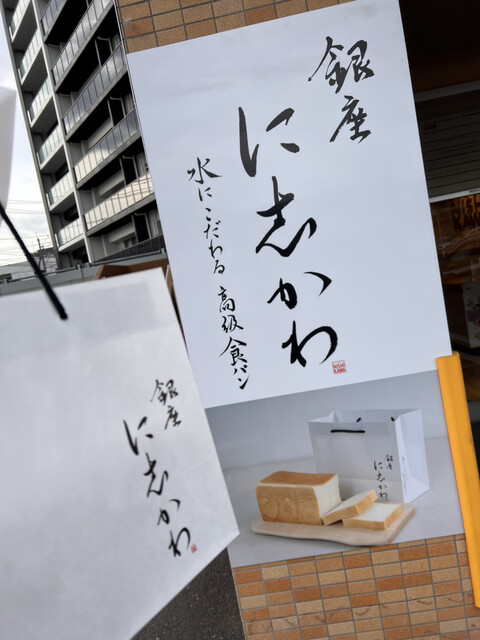 銀座
に志かわ
水にこだわる 高級食パン
銀座
に志かわ
銀座
に志かわ